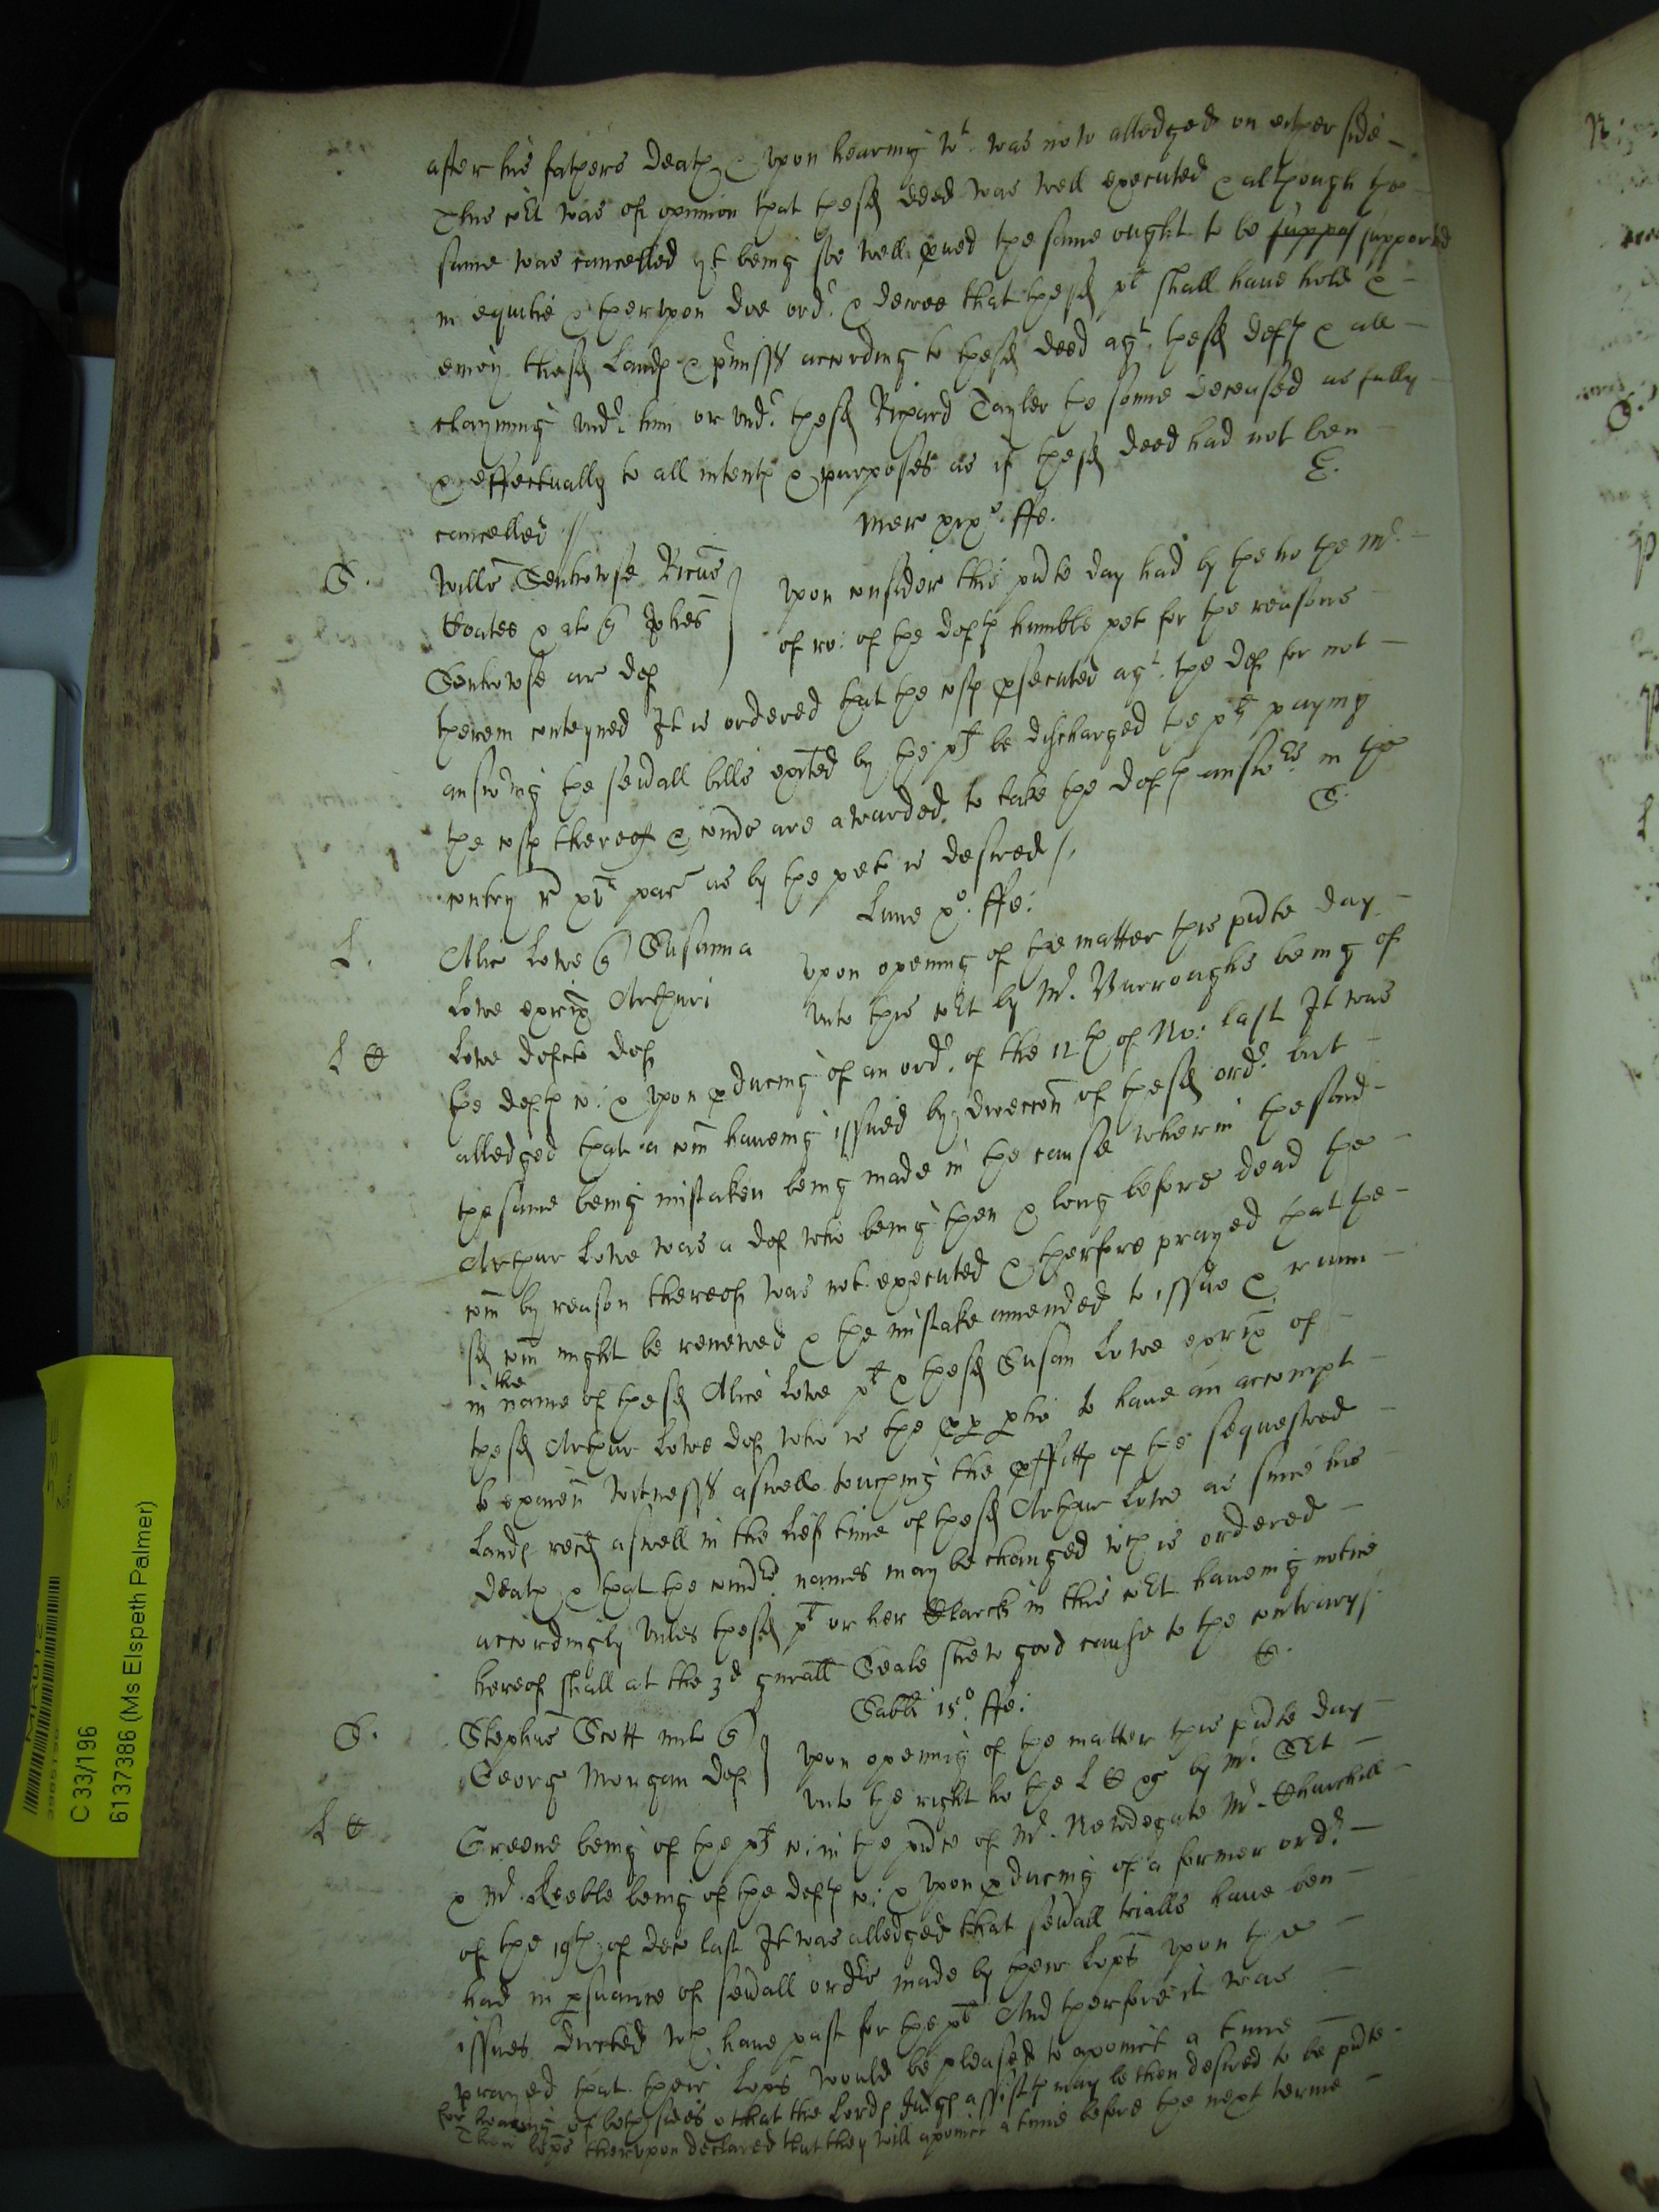 after his fathers death & upon hearing wt was now alledged on either side
This cort was of opinion that the sd deed was well executed & although the
same was cancelled yt being soe well proued the same ought to be suppos supported
in equitie & therupon doe ordr & decree that the sd plt shall haue hold &
enioy the sd Lands & premisses according to the sd deed agt the sd deft & all
clayming undr him or undr the sd Richard Tayler the sonne deceased as fully
& effectually to all intents & purposes as if the sd deed had not ben
cancelled //
E.
Mer xixo ffe.
S.
Willus Senhowse Ricus
Coates & al
Senhowse ar def
Upon consider this pnte day had by the ho the Mr
of ro: of the defts humble pet for the reasons
therein conteyned It is ordered that the costs psecuted agt the def for not
answering the seuall bills exhited by the plt be discharged the plt paying
the costs thereof & comrs are awarded to take the defts answers in the
contry as by the pet is desired /.
S.
Lune xo ffe:
L.
Alic Lowe Susanna
Lowe exrix Arthuri
Lowe defcti def
L C
Upon opening of the matter this pnte day
unto this cort by Mr Burroughs being of
the defts co: & upon pducing of an ordr of the 12th of No: last It was
alledged that a com haueing issued by direccon of the sd ordr but
the same being mistaken being made in the cause wherin the said
Arthur Lowe was a def who being then & long before dead the
com by reason thereof was not executed & therfore prayed that the
sd com might be renewed & the mistake amended to issue & runn
in the name of the sd Alice Lowe plt & the sd Susan Lowe exrix of
the sd Arthur Lowe def who is the ptie to have an accompt
to examin Witnesses aswell touching the pffitts of the sequestred
Lands recd aswell in the Lief time of the sd Arthur Lowe as since his
death & that the comrs names may be changed wch is ordered
accordingly unles the sd plt or her Clark in this cort haueing notice
hereof shall at the 3d gnrall Seale shew good cause to the contrary /.
C.
Sabbti 15o ffe:
S.
Stephus Scott mil
George Morgan def
L C
Upon opening of the matter this pnte day
unto the right ho the L C by Mr
Greene being of the plts co: in the pnce of Mr Newdegate Mr Churchill
& Mr Keeble being of the defts co: & upon pducing of a former ordr
of the 19th of Dec last It was alledged that seuall trialls haue ben
had in psuance of seuall ordrs made by their Lopps upon the
issues directed wch haue past for the plt And therfore it was
prayed that their Lopps would be pleased to apoint a time
for hearing of both sides & that the Lords Judges assistts may be then desired to be pnte
Their Lopps therupon declared that they will apoint a time before the next terme
C 33/196
6137386 (Ms Elspeth Palmer)